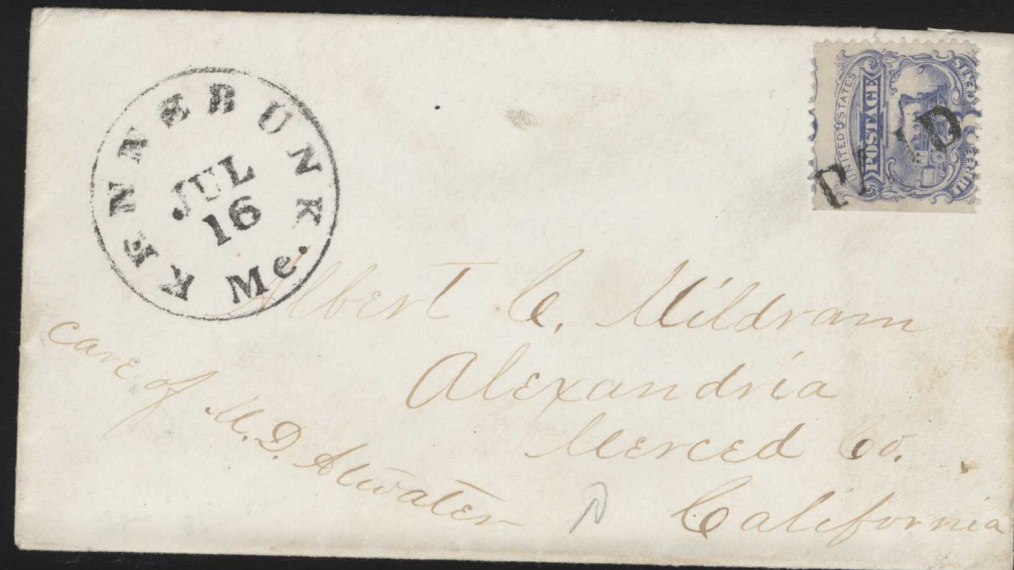 KENNEBUNK Me.
JUL
16
UNITED STATES
POSTAGE
PAID
Albert C. Mildram
Alexandria
Merced Co.
California
care of M. D. Atwater